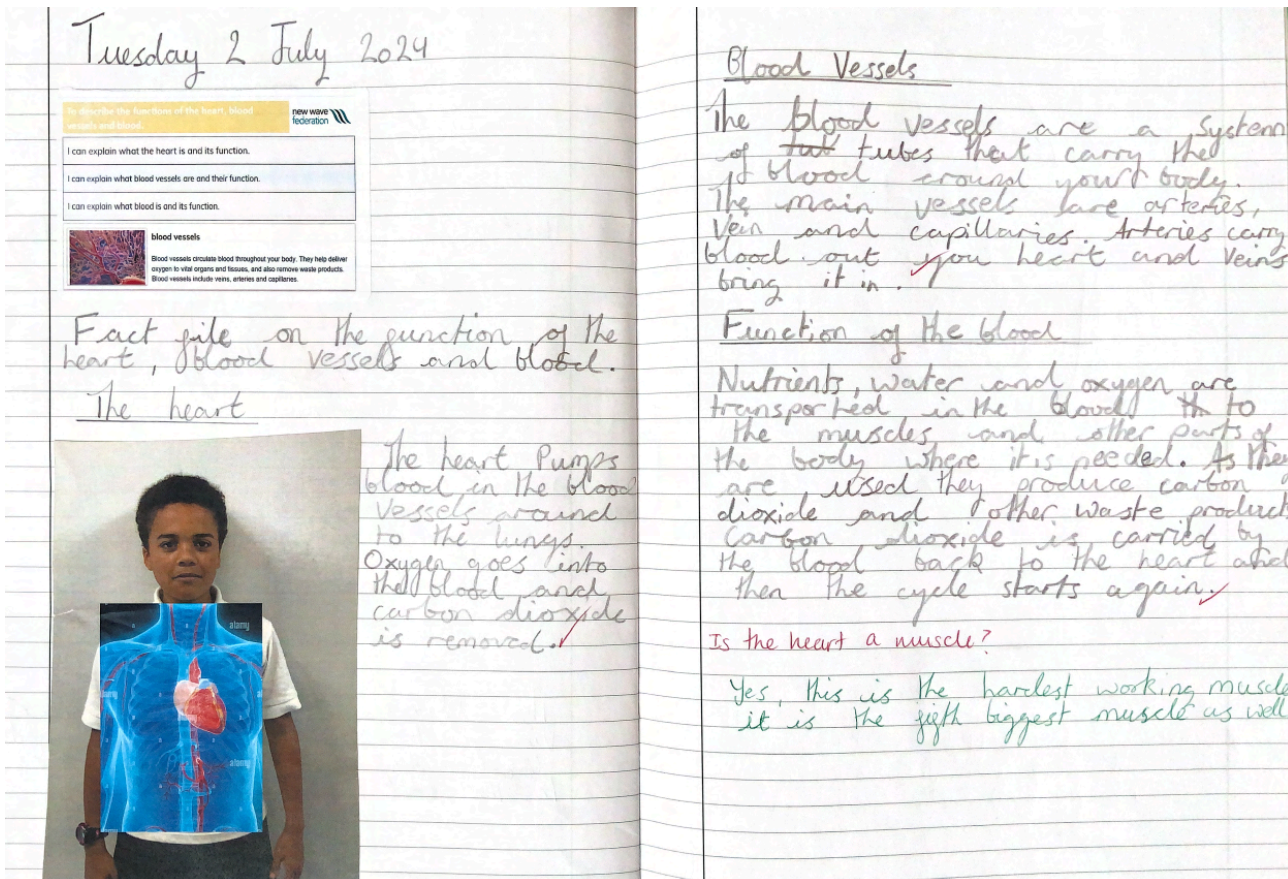 Tuesday 2 July 2024
To describe the functions of the heart, blood
vessels and blood.
new wave
federation
I can explain what the heart is and its function.
I can explain what blood vessels are and their function.
I can explain what blood is and its function.
blood vessels
Blood vessels circulate blood throughout your body. They help deliver
oxygen to vital organs and tissues, and also remove waste products.
Blood vessels include veins, arteries and capillaries.
Fact file on the function of the
heart, blood vessels and blood.
The heart
The heart Pumps
blood in the blood
vessels around
to the lungs.
Oxygen goes into
the blood and
carbon dioxide
is removed.
alamy
alamy
alamy
alamy
Blood Vessels
The blood vessels are a System
of tub tubes that carry the
blood around your body.
The main vessels are arteries,
Vein and capillaries. Arteries carry
blood out you heart and veins
bring it in.
Function of the blood
Nutrients, water and oxygen are
transported in the blood th to
the muscles and other parts of
the body where it is needed. As they
are used they produce carbon
dioxide and other waste product
carbon dioxide is carried by
the blood back to the heart and
then the cycle starts again.
Is the heart a muscle?
Yes, this is the hardest working muscle
it is the fifth biggest muscle as well